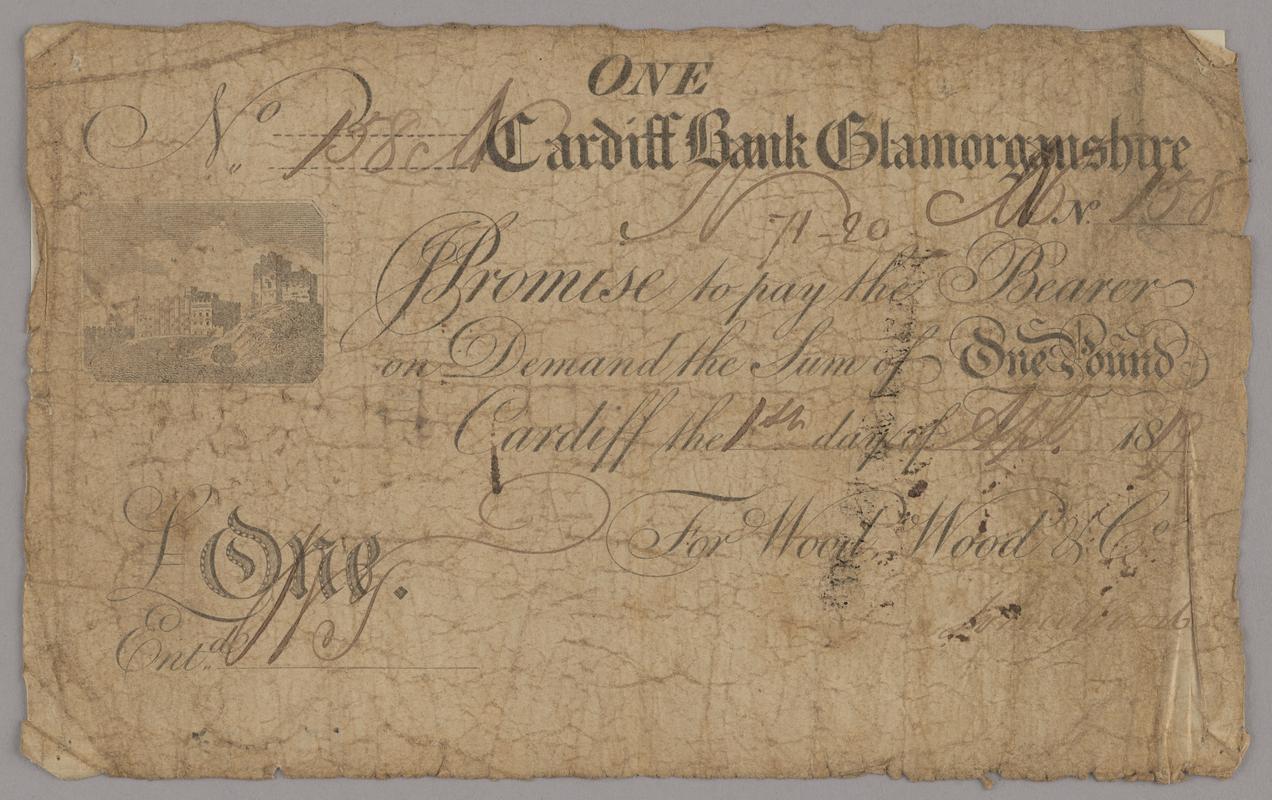 ONE
No 158 M Cardiff Bank Glamorganshire
M No 158
N 71-20
I Promise to pay the Bearer
on Demand the Sum of One Pound
Cardiff the 1th day of Apl. 18
For Wood, Wood & Co
£ One.
Entd